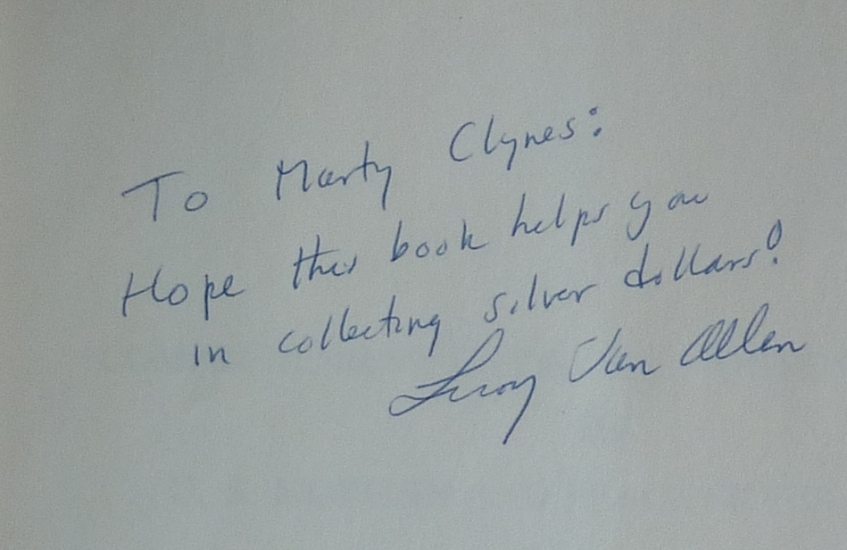 To Marty Clynes:
Hope this book helps you
in collecting silver dollars!
Leroy Van Allen